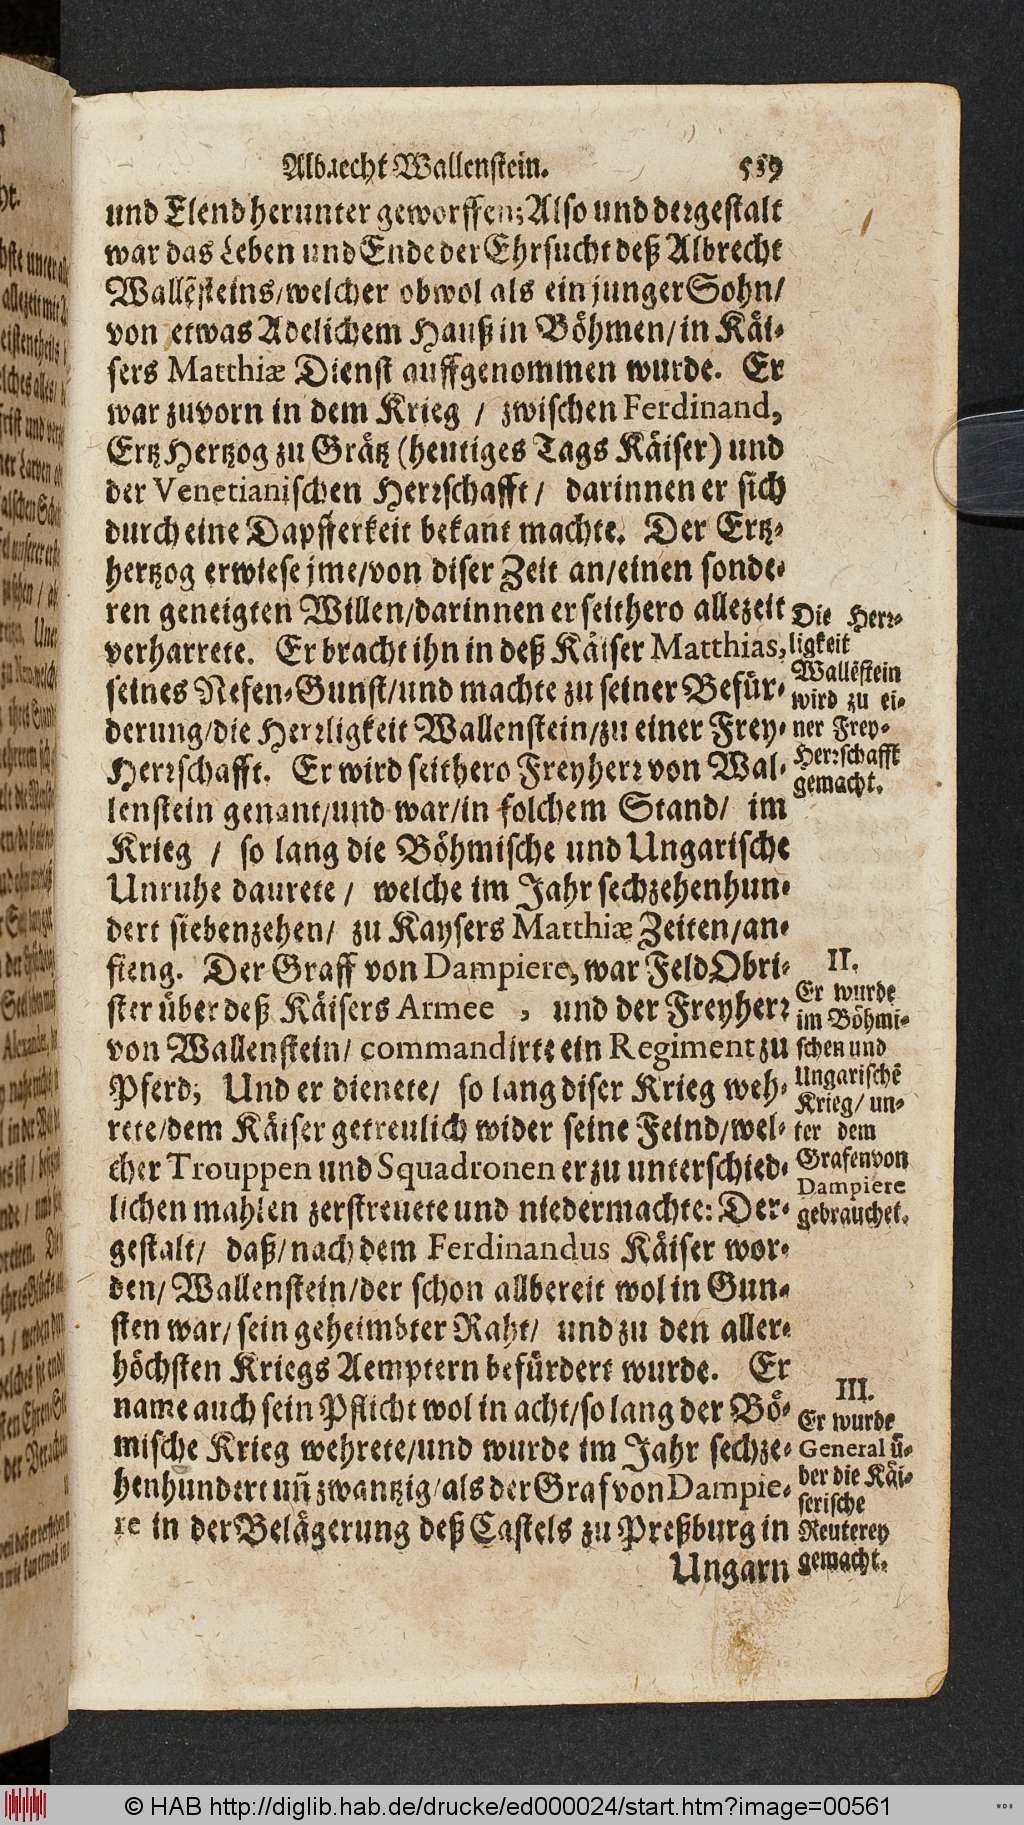 Albrecht Wallenstein. 539
und Elend herunter geworffen; Also und dergestalt
war das Leben und Ende der Ehrsucht deß Albrecht
Wallẽsteins/welcher obwol als ein junger Sohn/
von etwas Adelichem Hauß in Böhmen/in Käi-
sers Matthiæ Dienst auffgenommen wurde. Er
war zuvorn in dem Krieg / zwischen Ferdinand,
Ertz Hertzog zu Grätz (heutiges Tags Käiser) und
der Venetianischen Herrschafft/ darinnen er sich
durch eine Dapfferkeit bekant machte. Der Ertz-
hertzog erwiese jme/von diser Zeit an/einen sonde-
ren geneigten Willen/darinnen er seithero allezeit
verharrete. Er bracht ihn in deß Käiser Matthias,
seines Nefen-Gunst/und machte zu seiner Befür-
derung/die Herrligkeit Wallenstein/zu einer Frey-
Herrschafft. Er wird seithero Freyherr von Wal-
lenstein genant/und war/in solchem Stand/ im
Krieg / so lang die Böhmische und Ungarische
Unruhe daurete/ welche im Jahr sechzehenhun-
dert siebenzehen/ zu Kaysers Matthiæ Zeiten/an-
fieng. Der Graff von Dampiere, war Feld Obri-
ster über deß Käisers Armee , und der Freyherr
von Wallenstein/ commandirte ein Regiment zu
Pferd; Und er dienete/ so lang diser Krieg weh-
rete/dem Käiser getreulich wider seine Feind/wel-
cher Trouppen und Squadronen er zu unterschied-
lichen mahlen zerstreuete und niedermachte: Der-
gestalt/ daß/nach dem Ferdinandus Käiser wor-
den/ Wallenstein/der schon allbereit wol in Gun-
sten war/ sein geheimbter Raht/ und zu den aller-
höchsten Kriegs Aemptern befürdert wurde. Er
name auch sein Pflicht wol in acht/so lang der Bö-
mische Krieg wehrete/und wurde im Jahr sechze-
henhundert uñ zwantzig/als der Graf von Dampie-
re in der Belägerung deß Castels zu Preßburg in
Ungarn
Die Herr-
ligkeit
Wallẽstein
wird zu ei-
ner Frey-
Herrschafft
gemacht.
II.
Er wurde
im Böhmi-
schen und
Ungarischẽ
Krieg/ un-
ter dem
Grafen von
Dampiere
gebrauchet.
III.
Er wurde
General ü-
ber die Käi-
serische
Reuterey
gemacht.
© HAB http://diglib.hab.de/drucke/ed000024/start.htm?image=00561